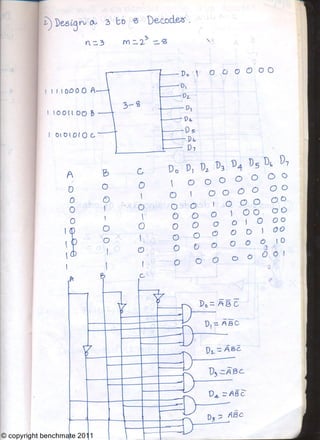 2) Design a 3 to 8 Decoder.
n=3 m=2³ =8
D₀ 1 0 0 0 0 0 0
1 1 1 1 0 0 0 0 A
D₁
D₂
1 1 0 0 1 1 0 0 B
3-8
D₃
D₄
1 0 1 0 1 0 1 0 C
D₅
D₆
D₇
A B C D₀ D₁ D₂ D₃ D₄ D₅ D₆ D₇
0 0 0 1 0 0 0 0 0 0 0
0 0 1 0 1 0 0 0 0 0 0
0 1 0 0 0 1 0 0 0 0 0
0 1 1 0 0 0 1 0 0 0 0
1 0 0 0 0 0 0 1 0 0 0
1 0 1 0 0 0 0 0 1 0 0
1 1 0 0 0 0 0 0 0 1 0
1 1 1 0 0 0 0 0 0 0 1
A B C
D₀ = A̅ B̅ C̅
D₁ = A̅ B̅ C
D₂ = A̅ B C̅
D₃ = A̅ B C
D₄ = A B̅ C̅
D₅ = A B̅ C
© copyright benchmate 2011